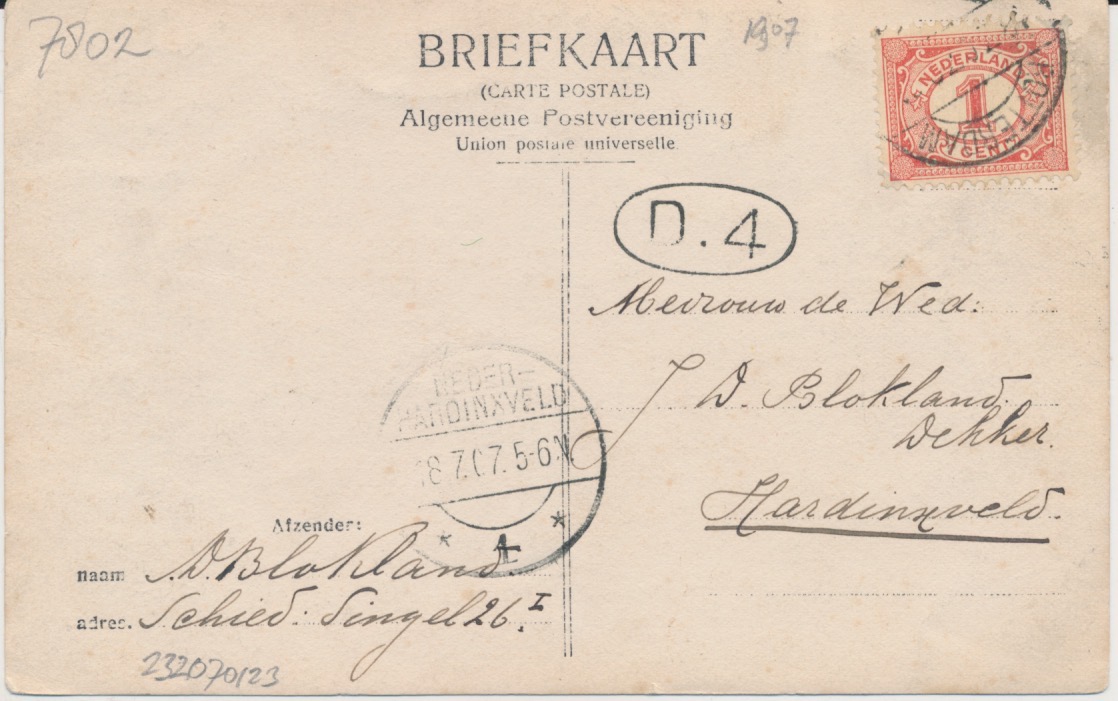 7802
1907
BRIEFKAART
(CARTE POSTALE)
Algemeene Postvereeniging
Union postale universelle
NEDERLAND
1
CENT
ROTTERDAM
D.4
Mevrouw de Wed:
J D. Blokland
Dekker.
Hardinxveld.
NEDER-
HARDINXVELD
18 7.07. 5-6N
* 1 *
Afzender:
naam D. Blokland.
adres. Schied: Singel 26 I
232070123